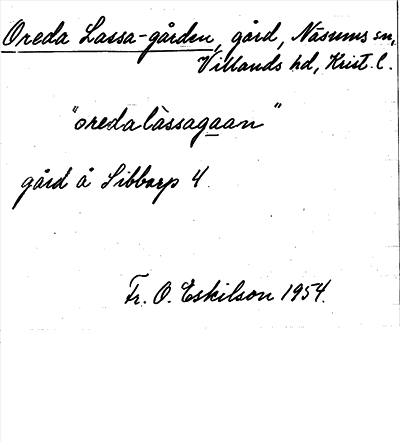 Oreda Lassa-gården, gård, Näsums sn,
Villands hd, Krist. l.
"oredalàssagaan"
gård å Sibbarp 4
Fr. O. Eskilson 1954.